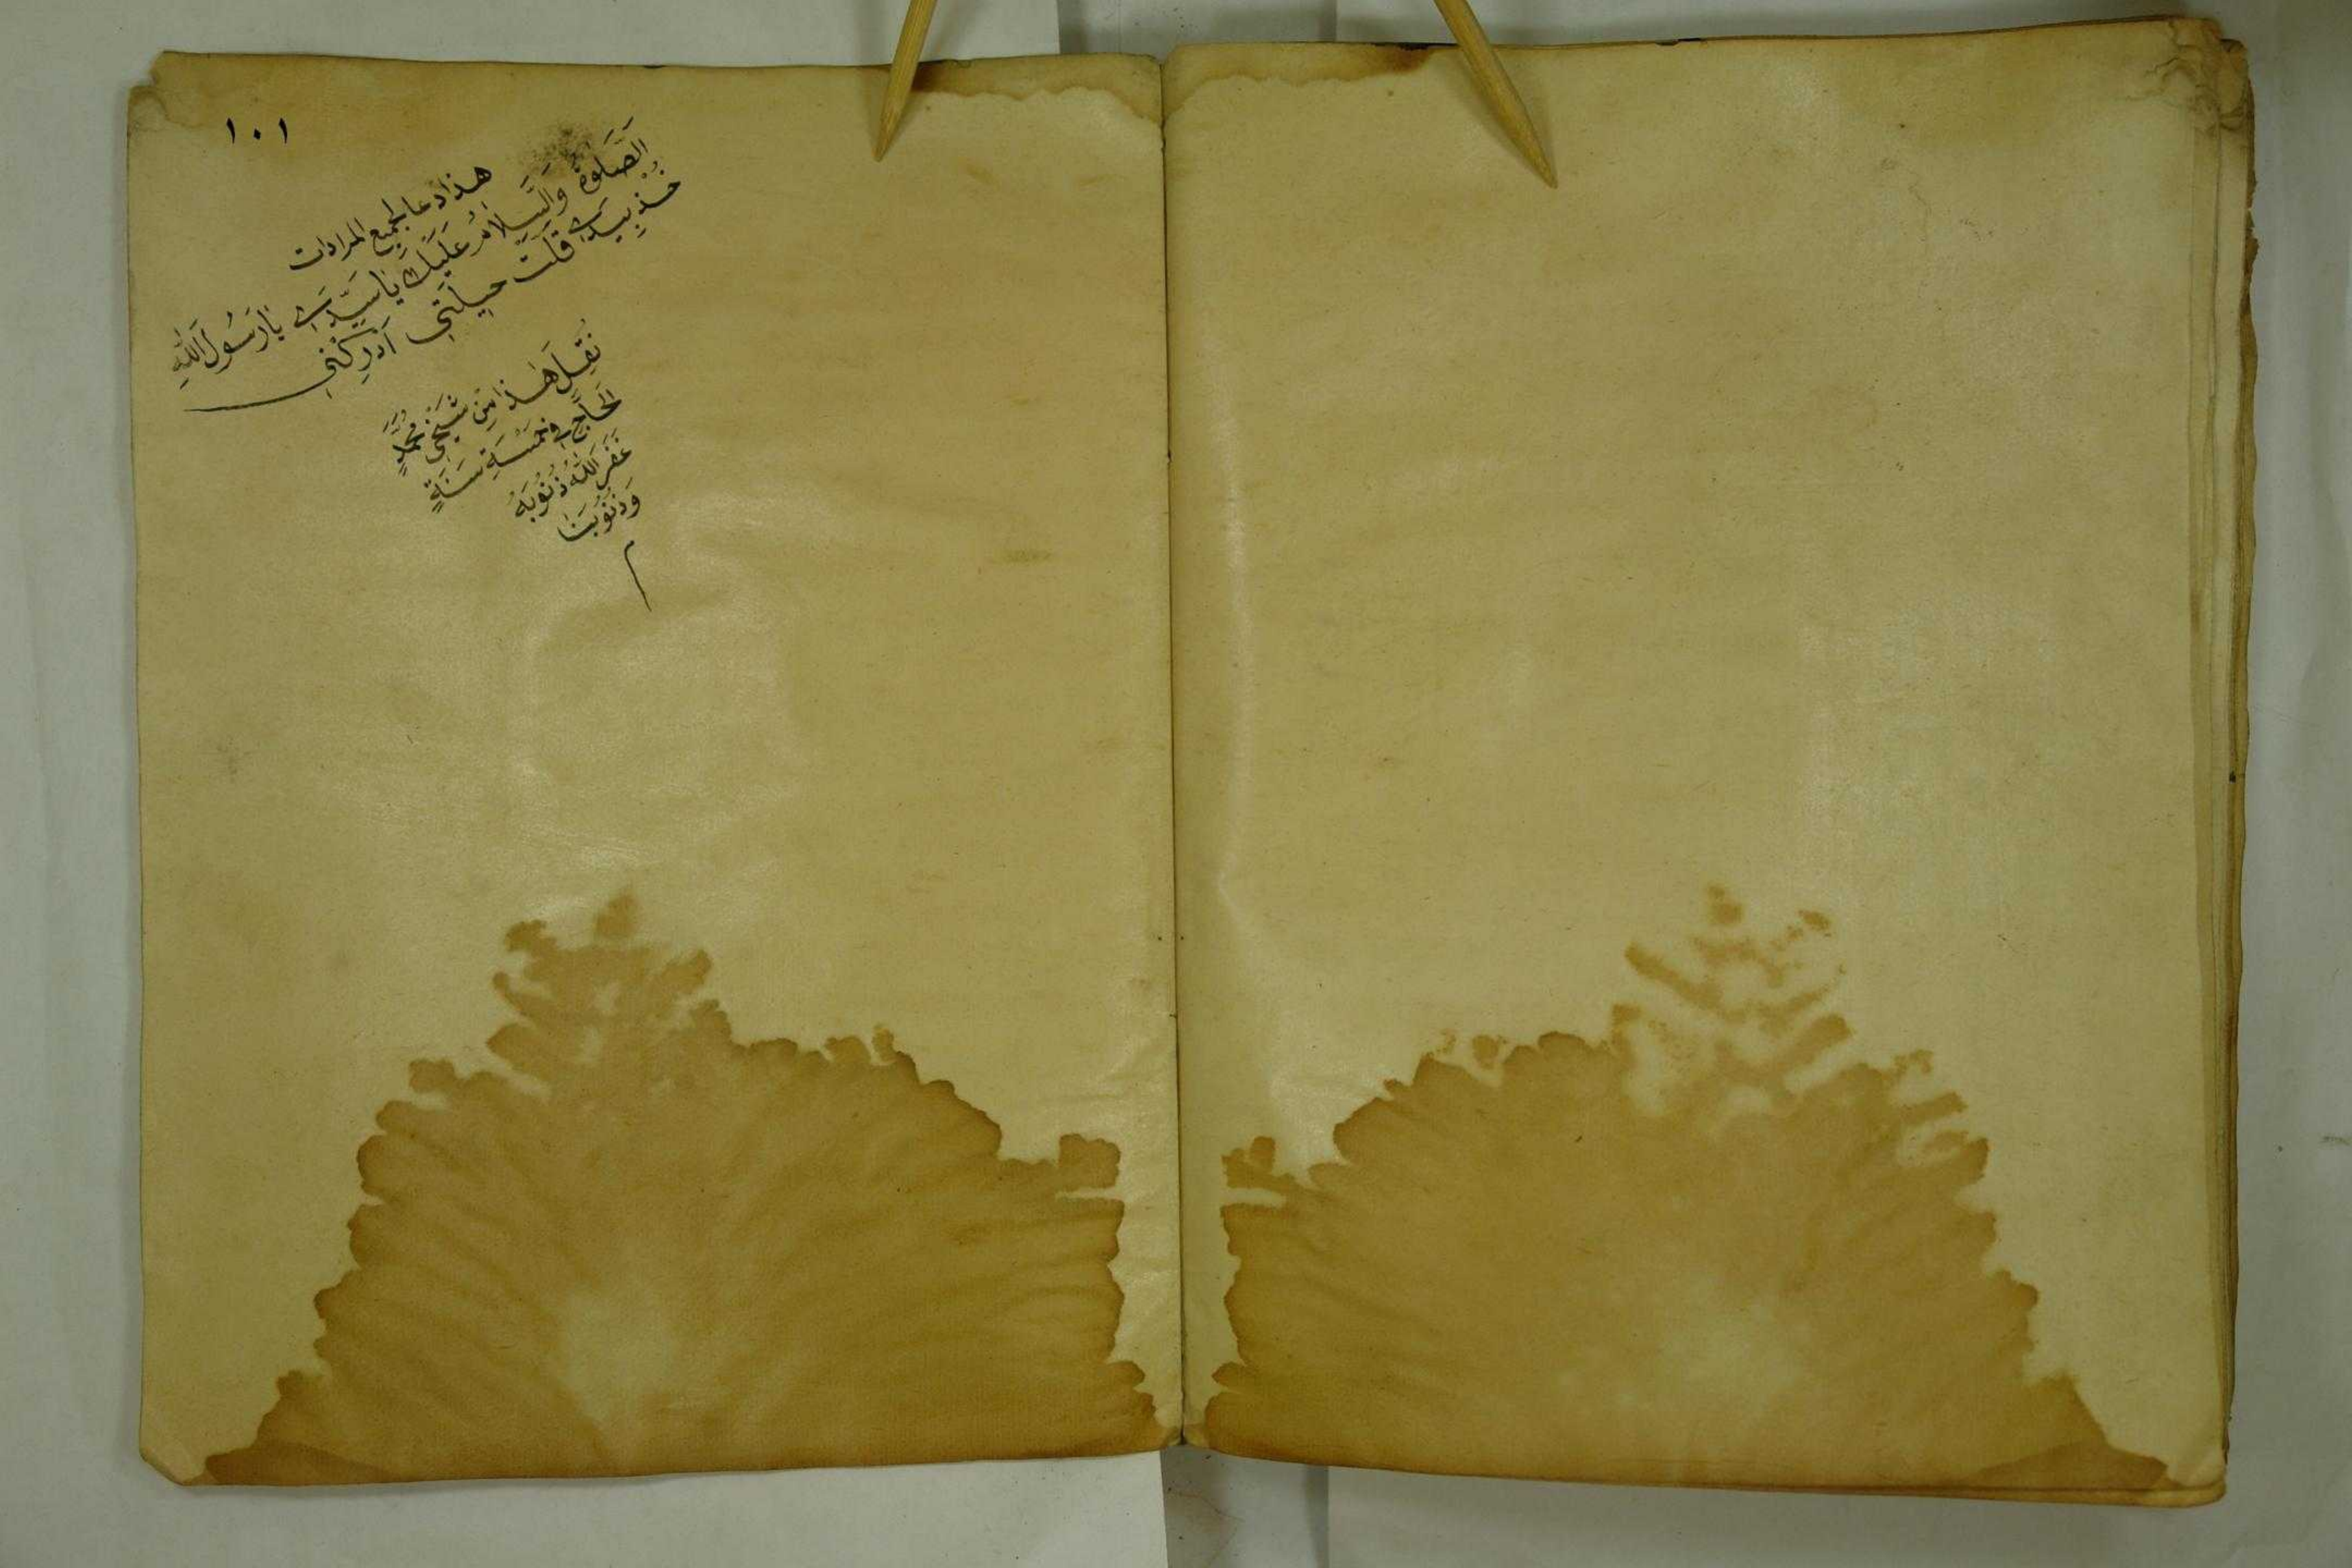 ١٠١
هذا دعا لجميع المرادات
اَلصَّلٰوةُ وَالسَّلَامُ عَلَيْكَ يَا سَيِّدِي يَا رَسُولَ اللهِ
خُذْ بِيَدِي قَلَّتْ حِيلَتِي اَدْرِكْنِي
نُقِلَ هٰذَا مِنْ شَيْخِي مُحَمَّدٍ
الحَاجِّ فِي خَمْسَةِ سَنَةٍ
غَفَرَ اللهُ ذُنُوبَهُ
وَذُنُوبَنَا
م